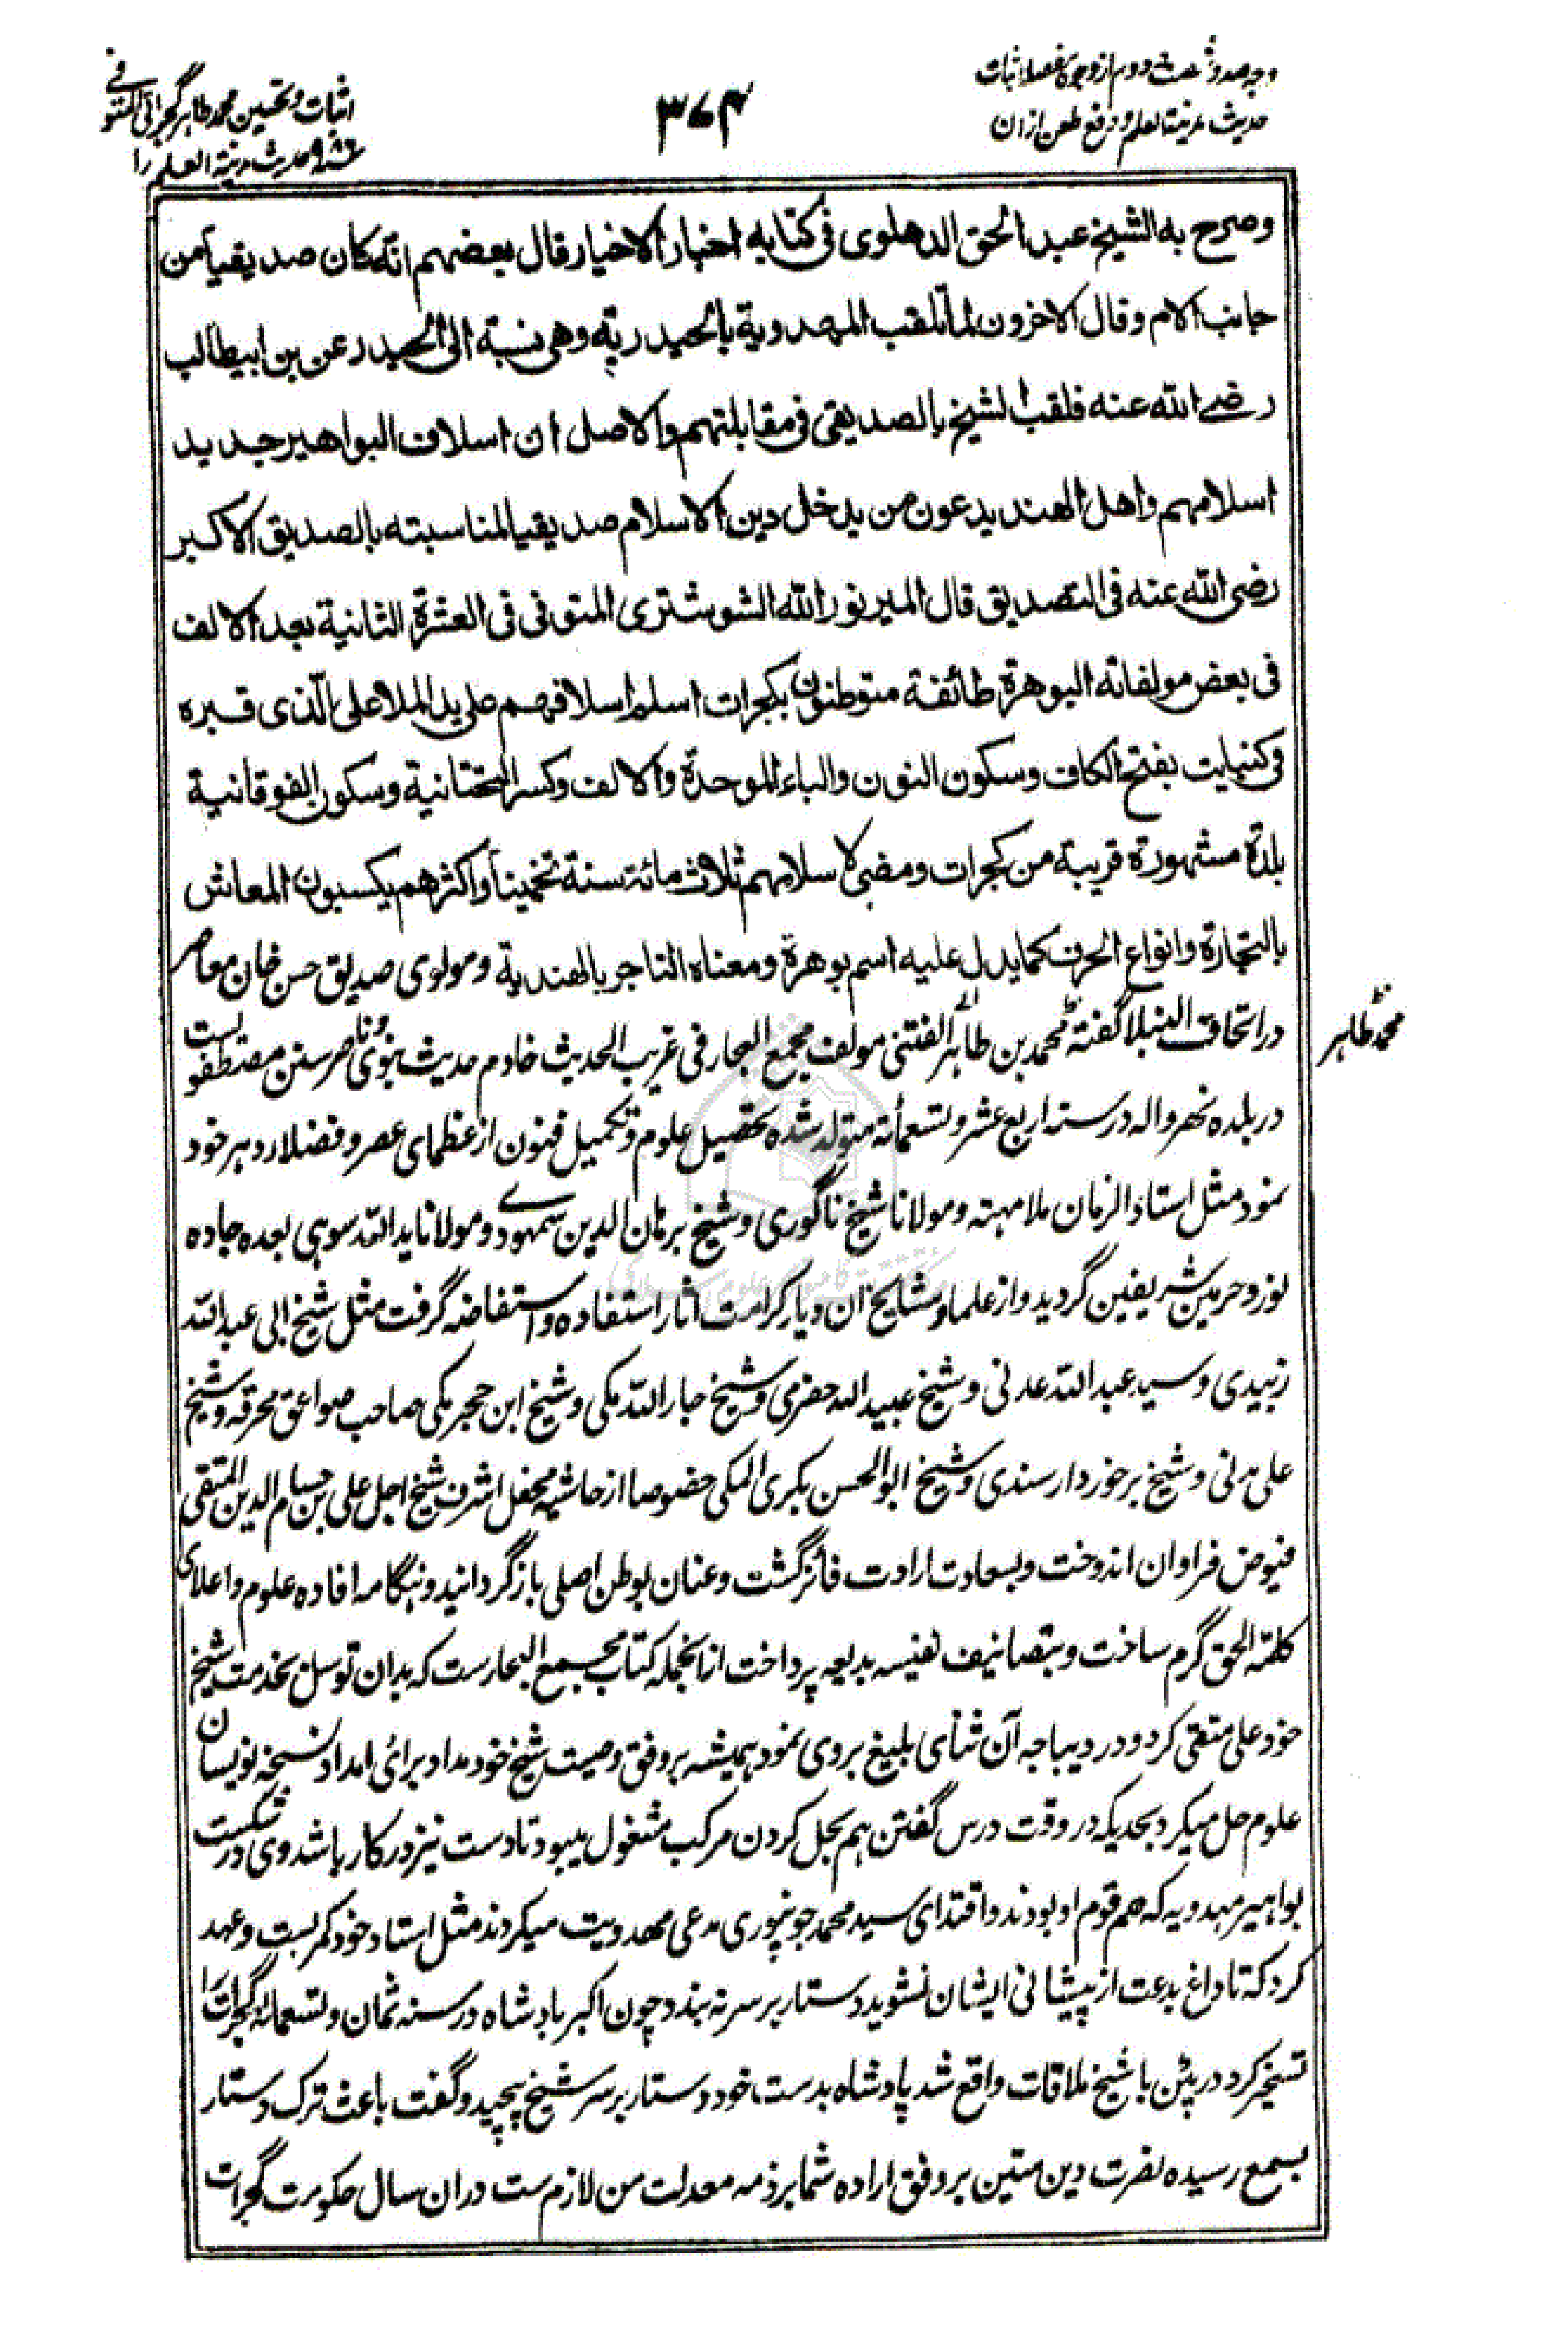 وجه صد و شصت دوم از وجوه مفصله اثبات
حدیث مدینة العلم و دفع طعن ازان
۳۶۴
اثبات و تحسین محمد طاهر گجراتی المتوفی
۹۸۶ حدیث مدینة العلم را
وصرح به الشیخ عبد الحق الدهلوی فی کتابه اخبار الاخیار قال بعضهم انه کان صدیقیا من
جانب الام وقال الاخرون لما تلقب المهدویة بالحیدریه وهی نسبة الی الحیدر عن بن ابیطالب
رضی الله عنه فلقب الشیخ بالصدیقی فی مقابلتهم والاصل ان اسلاف البواهیر جدید
اسلامهم واهل الهند یدعون من یدخل دین الاسلام صدیقیا لمناسبته بالصدیق الاکبر
رضی الله عنه فی التصدیق قال المیر نور الله الشوشتری المتوفی فی العشرة الثانیة بعد الالف
فی بعض مولفاته البوهرة طائفة متوطنون بکجرات اسلم اسلافهم علی ید الملا علی الذی قبره
فی کنبایت بفتح الکاف وسکون النون والباء الموحدة والالف وکسر التحتانیة وسکون الفوقانیة
بلدة مشهورة قریبة من کجرات ومضی لاسلامهم ثلاث مائة سنة تخمینا واکثرهم یکسبون المعاش
بالتجارة وانواع الحرف کما یدل علیه اسم بوهرة ومعناه التاجر بالهندیة ومولوی صدیق حسن خان معاصر
در اتحاف النبلا گفته محمد بن طاهر الفتنی مولف مجمع البحار فی غریب الحدیث خادم حدیث نبوی و ناصر سنن مصطفوست
محمد طاهر
در بلده نهرواله در سنه اربع عشر وتسعمأته متولد شده تحصیل علوم و تکمیل فنون از عظمای عصر و فضلاء دهر خود
نمود مثل استاد الزمان ملا مهته و مولانا شیخ ناگوری و شیخ برهان الدین سمهودی و مولانا ید الله سوهی بعده جاده
نورد حرمین شریفین گردید و از علما و مشایخ آن دیار کرامت آثار استفاده و استفاضه گرفت مثل شیخ ابی عبد الله
زبیدی و سید عبد الله عدنی و شیخ عبید الله حضرمی و شیخ جار الله مکی و شیخ ابن حجر مکی صاحب صواعق محرقه و شیخ
علی مدنی و شیخ برخوردار سندی و شیخ ابو الحسن بکری المکی خصوصا از حاشیه محفل اشرف شیخ اجل علی بن حسام الدین المتقی
فیوض فراوان اندوخت و بسعادت ارادت فائز گشت و عنان بوطن اصلی بازگردانید و هنگامه افاده علوم و اعلای
کلمة الحق گرم ساخت و بتصانیف نفیسه بدیعه پرداخت ازانجمله کتاب مجمع البحارست که بدان توسل بخدمت شیخ
خود علی متقی کرد و در دیباجه آن ثنای بلیغ بروی نمود همیشه بر وفق وصیت شیخ خود مداد برای امداد نسخه نویسان
علوم حل میکرد بحدیکه در وقت درس گفتن هم بحل کردن مرکب مشغول میبود تا دست نیز در کار باشد وی در شکست
بواهیر مهدویه که هم قوم او بودند و اقتدای سید محمد جونپوری مدعی مهدویت میکردند مثل استاد خود کمر بست و عهد
کرد که تا داغ بدعت از پیشانی ایشان نشوید دستار بر سر نه بندد چون اکبر بادشاه در سنه ثمان وتسعمائة گجرات را
تسخیر کرد در پتن با شیخ ملاقات واقع شد پادشاه بدست خود دستار بر سر شیخ پیچید و گفت باعث ترک دستار
بسمع رسیده نصرت دین متین بر وفق اراده شما بر ذمه معدلت من لازم ست دران سال حکومت گجرات